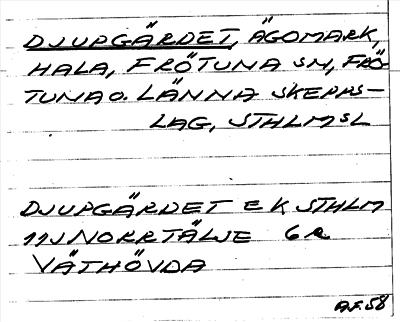 DJUPGÄRDET, ÄGOMARK,
HALA, FRÖTUNA SN, FRÖ-
TUNA O. LÄNNA SKEPPS-
LAG, STHLMS L
DJUPGÄRDET EK STHLM
11J NORRTÄLJE 6 R
VÄTHÖVDA
A.F. 58